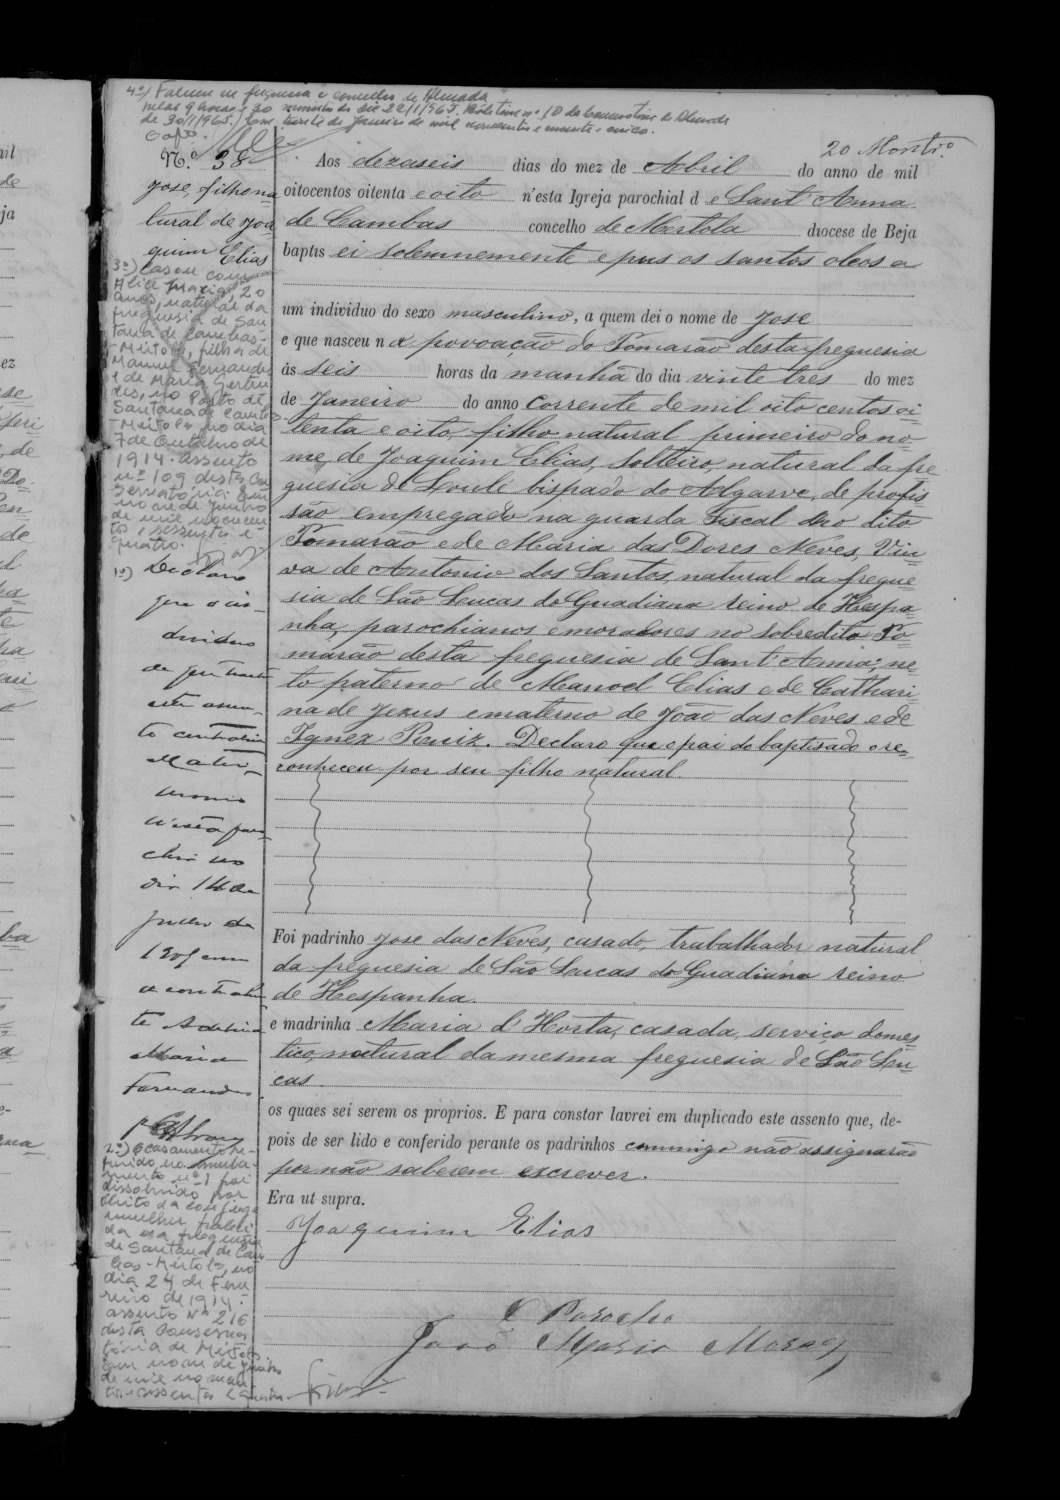 4º) Faleceu na freguesia e concelho de Almada
pelas 9 horas e 30 minutos do dia 22/1/1965. Boletim nº 10 da Conservatória de Almada
de 30/1/1965. trinta de Janeiro de mil novecentos e sessenta e cinco.
20 Montrº
Nº 38
José, filho na
tural de Joa
quim Elias
3º) Casou com
Alice Maria, 20
anos, natural da
freguesia de San
tana de Cambas-
-Mértola, filha de
Manuel Fernandes
e de Maria Gertru
des, no Posto de
Santana de Cambas
-Mértola, no dia
7 de Outubro de
1914. assento
nº 109 desta Con
servatória. Em
nove de Junho
de mil novecen
tos e sessenta e
quatro.
1º) Declaro
que o in-
dividuo
de que trata
este assen-
to contrahiu
Matri-
monio
n'esta paro-
chia no
dia 14 de
de
com
a contrahen
te
Maria
Fernandes
2º) O casamento re-
ferido no averba-
mento nº 1 foi
dissolvido por
óbito da conjuge
mulher, faleci
da na freguesia
de Santana de Cam
bas-Mértola, no
dia 24 de Feve
reiro de 1914.
assento Nº 216
desta Conserva
tória de Mértola
Em nove de Junho
de mil novecen
tos e sessenta e quatro.
Aos dezaseis dias do mez de Abril do anno de mil
oitocentos oitenta e oito n'esta Igreja parochial d e Sant'Anna
de Cambas concelho de Mertola diocese de Beja
baptis ei solemnemente e pus os santos oleos a
um individuo do sexo masculino, a quem dei o nome de José
e que nasceu n a povoação do Pomarão desta freguesia
ás seis horas da manhã do dia vinte tres do mez
de Janeiro do anno corrente de mil oitocentos oi
tenta e oito, filho natural primeiro do no
me, de Joaquim Elias, solteiro, natural da fre
guesia de Loulé bispado do Algarve, de profis
são empregado na guarda Fiscal no dito
Pomarão e de Maria das Dores Neves, Viu
va de Antonio dos Santos, natural da fregue
sia de São Lucas do Guadiana reino de Hespa
nha, parochianos e moradores no sobredito Po
marão desta freguesia de Sant'Anna; ne
to paterno de Manoel Elias e de Cathari
na de Jezus e materno de João das Neves e de
Ignez Ruiz. Declaro que o pai do baptisado o re
conheceu por seu filho natural.
Foi padrinho José das Neves, casado, trabalhador natural
da freguesia de São Lucas do Guadiana reino
de Hespanha.
e madrinha Maria d'Horta, casada, serviço domes
tico, natural da mesma freguesia de São Lu
cas.
os quaes sei serem os proprios. E para constar lavrei em duplicado este assento que, de-
pois de ser lido e conferido perante os padrinhos commigo não assignarão
por não saberem escrever.
Era ut supra.
Joaquim Elias
O Parocho
José Maria